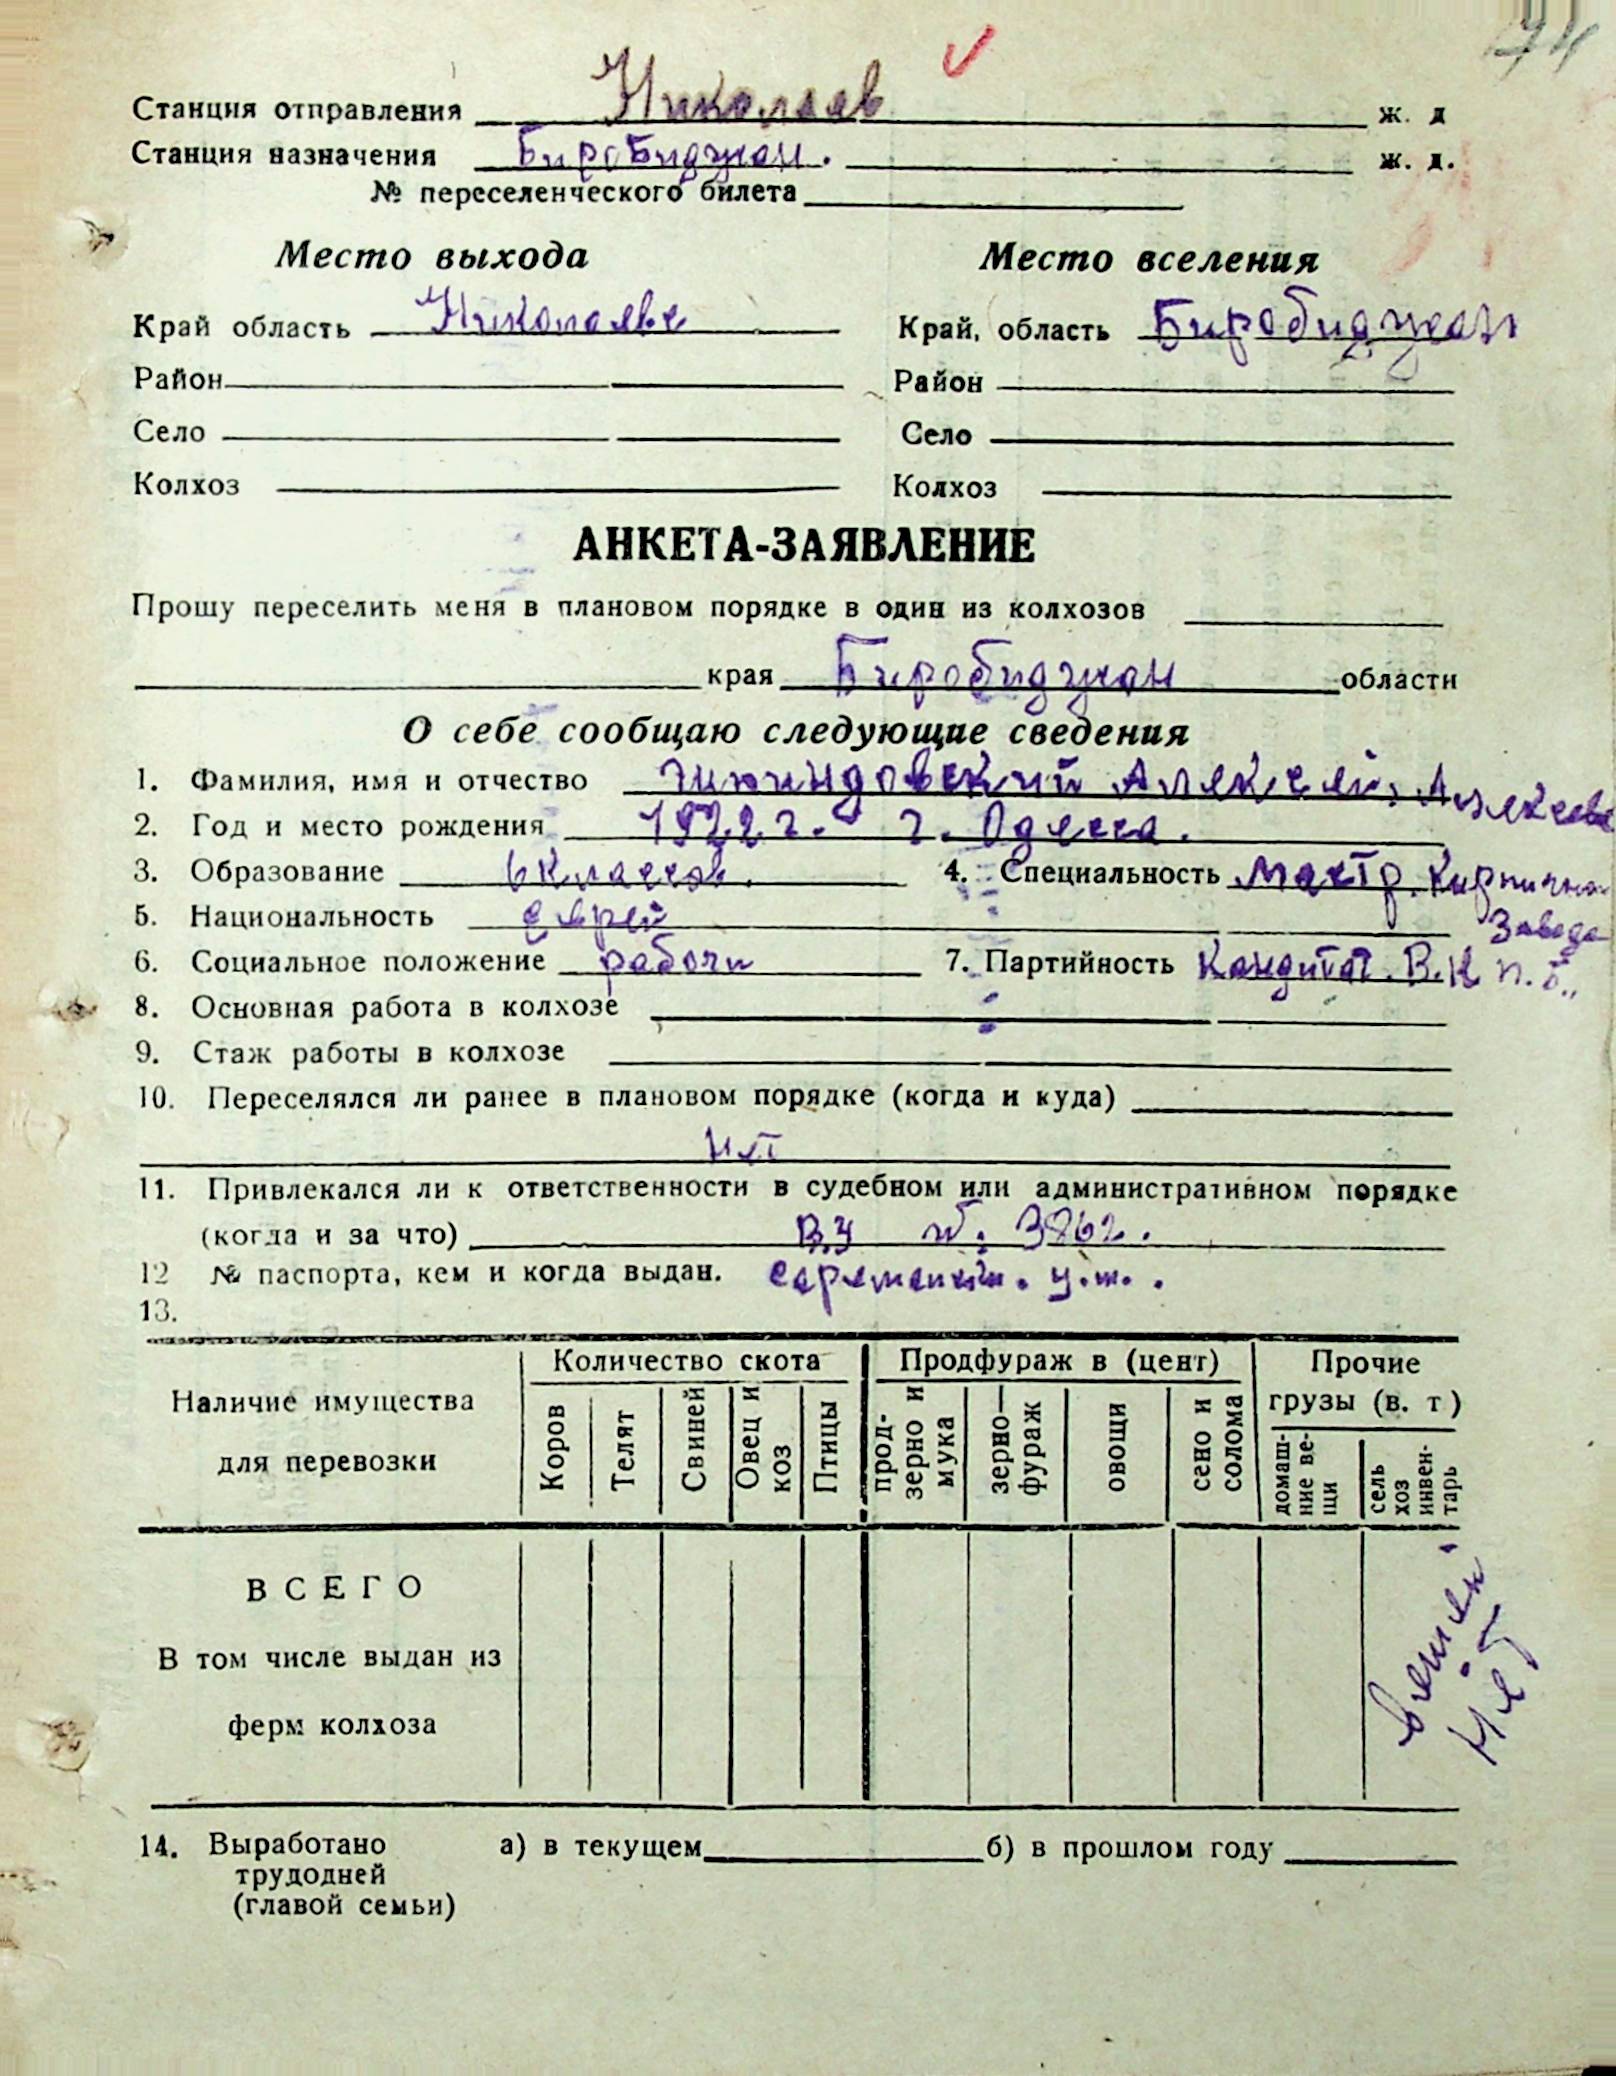 74
Станция отправления Николаев ж. д
Станция назначения Биробиджан. ж. д.
№ переселенческого билета
Место выхода Место вселения
Край область Николаеве Край, область Биробиджан
Район Район
Село Село
Колхоз Колхоз
АНКЕТА-ЗАЯВЛЕНИЕ
Прошу переселить меня в плановом порядке в один из колхозов
края Биробиджан области
О себе сообщаю следующие сведения
1. Фамилия, имя и отчество
2. Год и место рождения 1922 г. г. Одесса.
3. Образование 6 классов. 4. Специальность Мастр. Кирпична
Завода
5. Национальность еврей
6. Социальное положение рабочи 7. Партийность Кандитат. В.К п.б.,
8. Основная работа в колхозе
9. Стаж работы в колхозе
10. Переселялся ли ранее в плановом порядке (когда и куда)
нет
11. Привлекался ли к ответственности в судебном или административном порядке
(когда и за что)
12 № паспорта, кем и когда выдан.
13.
Наличие имущества для перевозки Количество скота Продфураж в (цент) Прочие грузы (в. т)
Коров Телят Свиней Овец и коз Птицы прод-зерно и мука зерно—фураж овощи сено и солома домаш-ние ве-щи сель хоз инвен-тарь
ВСЕГО
В том числе выдан из
ферм колхоза
вещей
нет
14. Выработано а) в текущем б) в прошлом году
трудодней
(главой семьи)